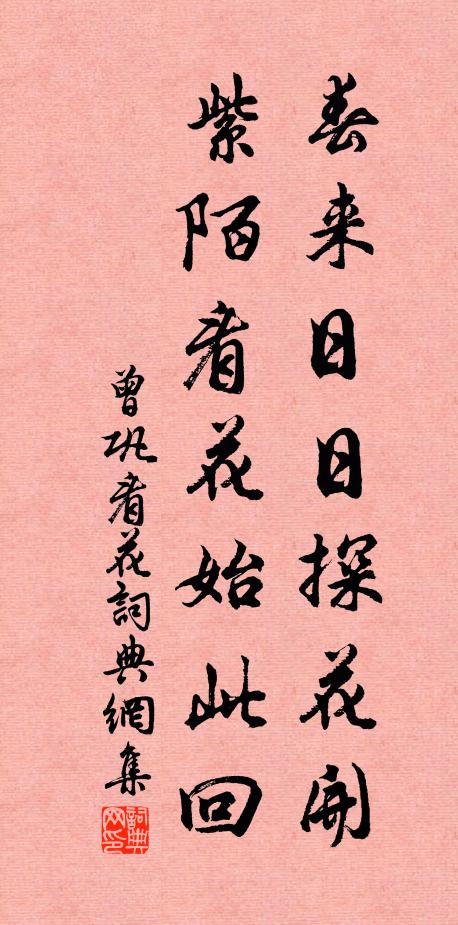 春来日日探花開
紫陌看花始此回
曾巩看花詞典網集
詞典网印